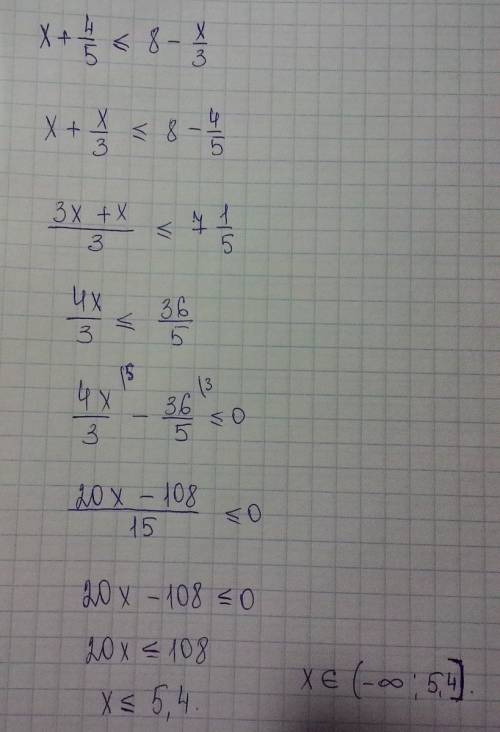 x + 4/5 ≤ 8 - x/3
x + x/3 ≤ 8 - 4/5
(3x + x)/3 ≤ 7 1/5
4x/3 ≤ 36/5
4x/3 \5 - 36/5 \3 ≤ 0
(20x - 108)/15 ≤ 0
20x - 108 ≤ 0
20x ≤ 108
x ≤ 5,4.
x ∈ (-∞; 5,4].